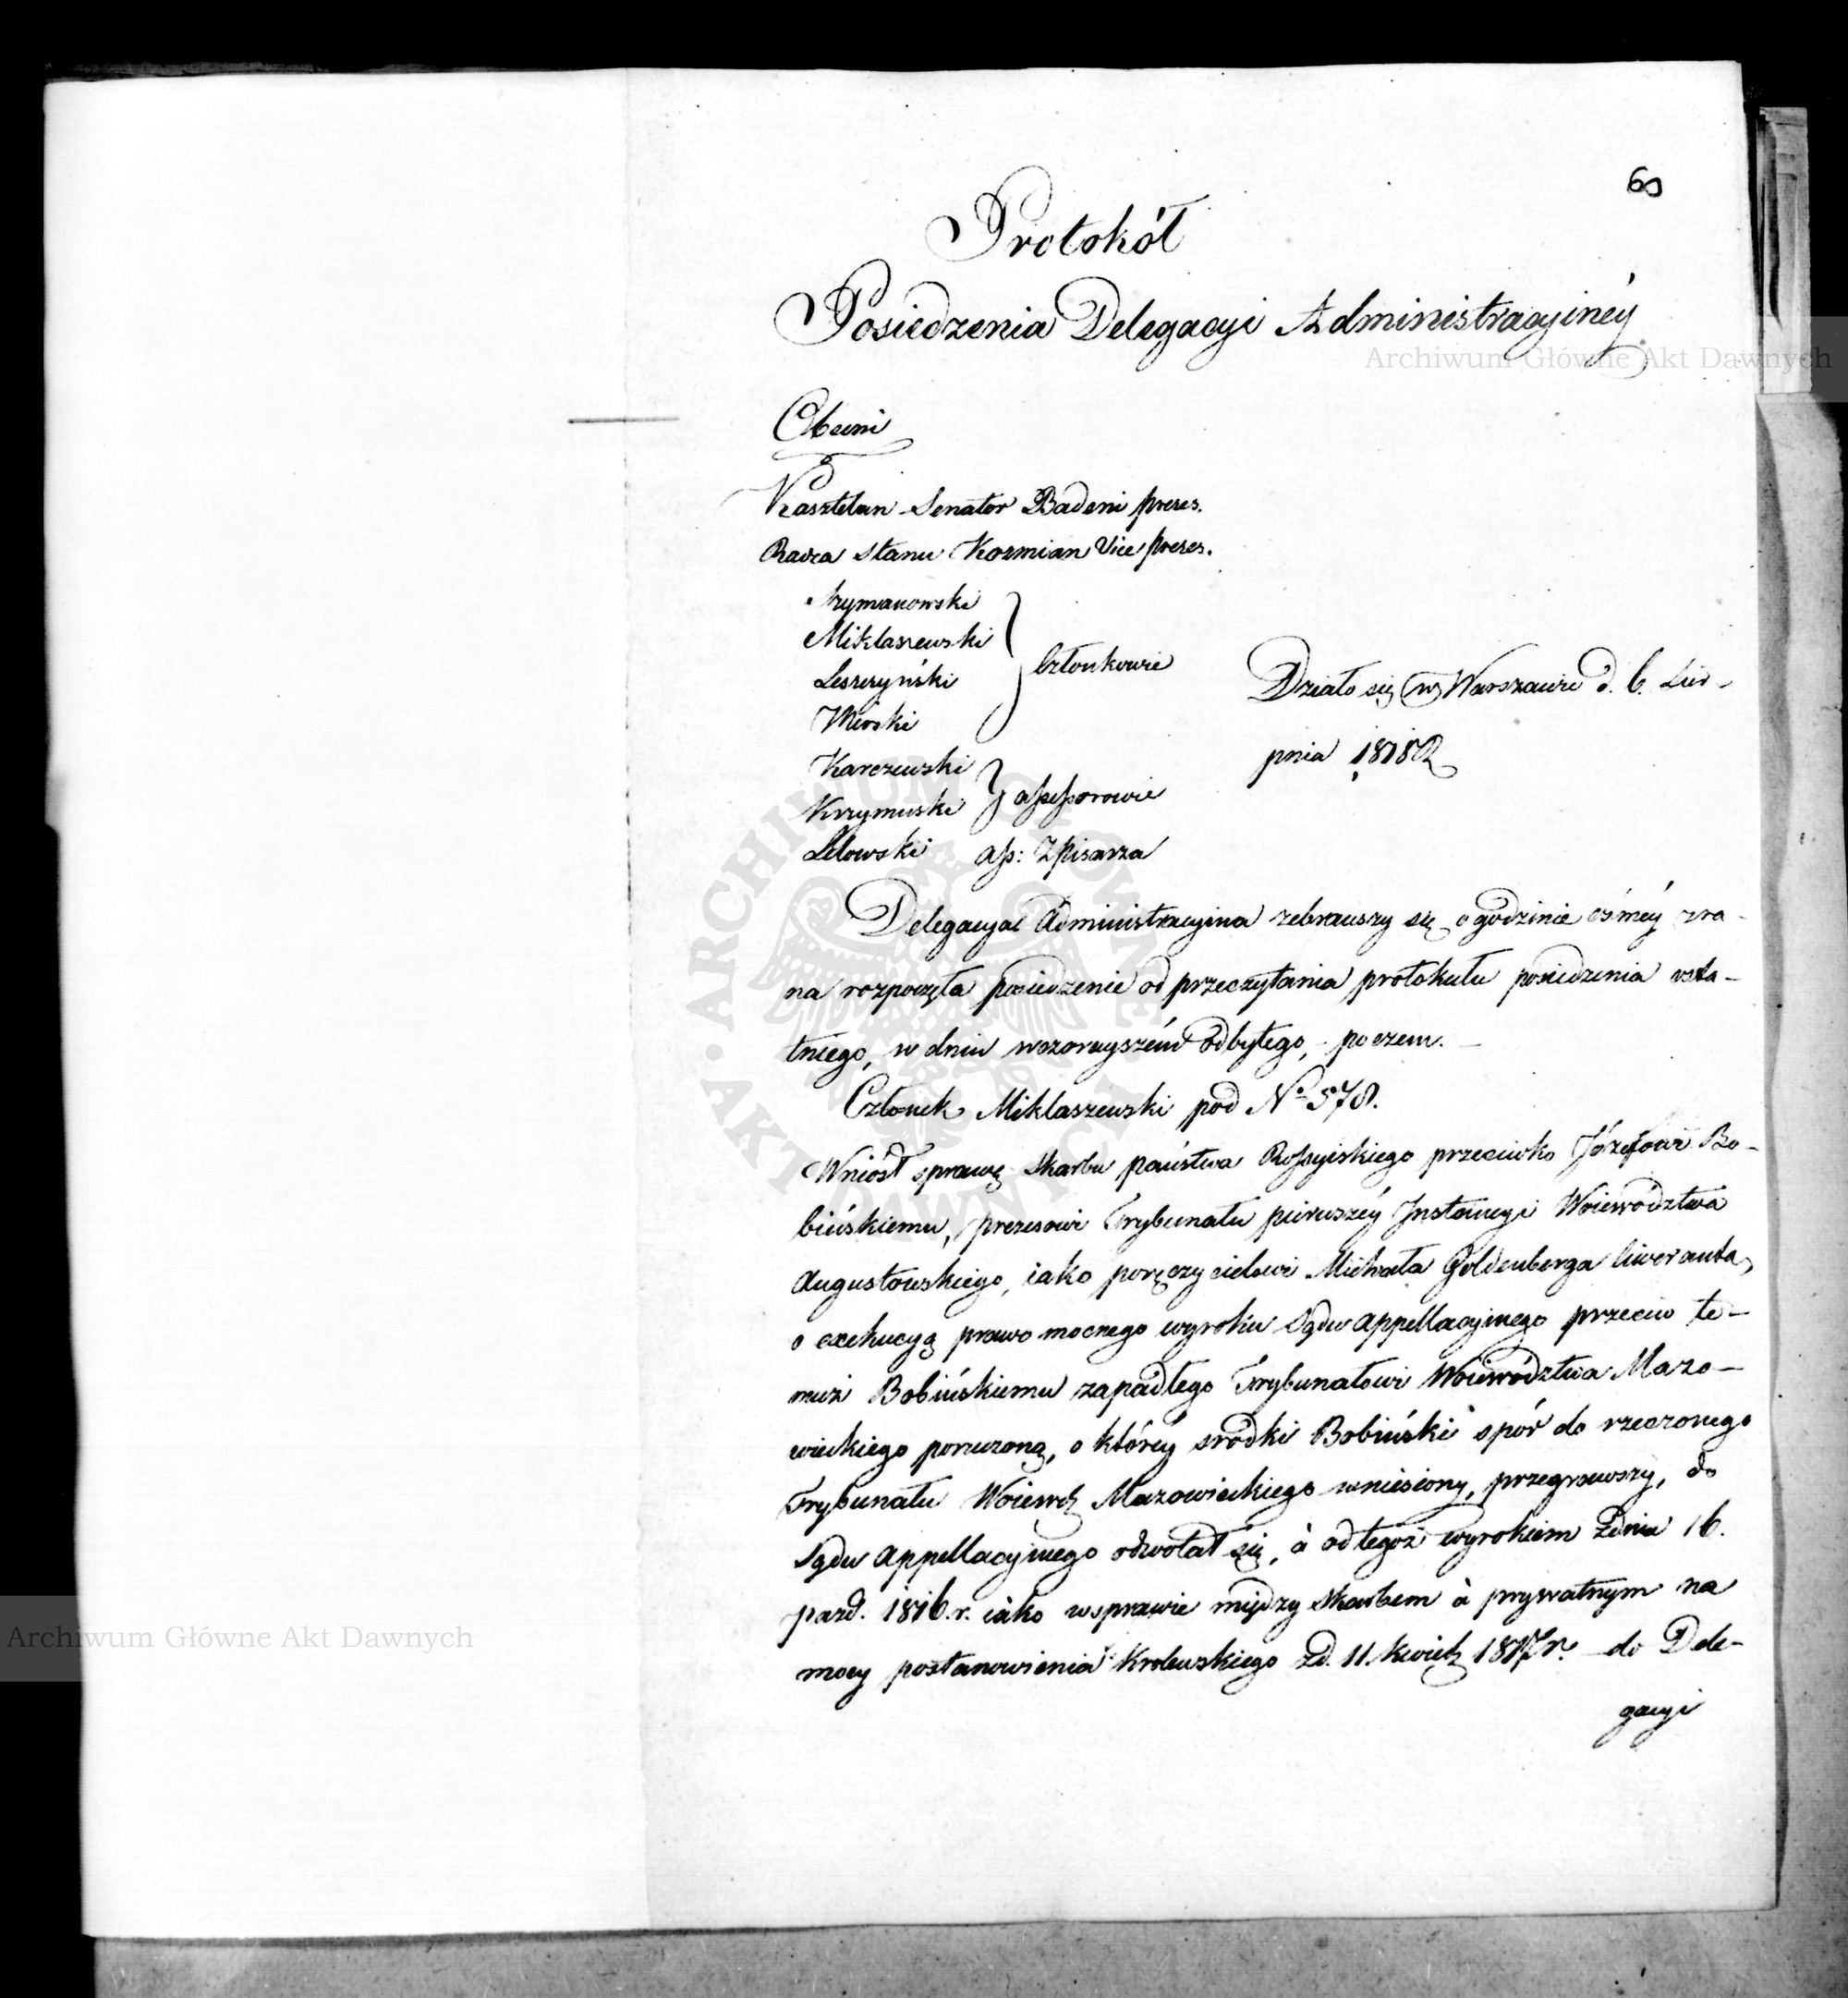 60
Protokół
Posiedzenia Delegacyi Administracyinéy
Obecni
Kasztelan Senator Badeni prezes.
Radca stanu Kozmian Vice prezes.
Szymanowski
Miklaszewski
Leszczyński
Mirski
Członkowie
Działo się w Warszawie d. 6. Sier-
pnia 1818 R
Karczewski
Krzymuski
assessorowie
Lelowski ass: Z Pisarza
Delegacya Administracyina zebrawszy się o godzinie ósméy zra-
na rozpoczęła posiedzenie od przeczytania protokułu posiedzenia osta-
tniego, w dniu wczorayszém odbytego, - poczem.
Członek Miklaszewski pod No 578.
Wniósł sprawę Skarbu państwa Rossyiskiego przeciwko Józefowi Bo-
bińskiemu, prezesowi Trybunału pierwszéy Instancyi Woiewództwa
Augustowskiego, iako poręczycielowi Michała Goldenberga liweranta,
o exekucyą prawomocnego wyroku Sądu Appellacyinego przeciw te-
muż Bobińskiemu zapadłego Trybunałowi Woiewództwa Mazo-
wieckiego poruczoną, o któréy srodki Bobiński spór do rzeczonego
Trybunału Woiewdz Mazowieckiego wniesiony, przegrawszy, do
Sądu Appellacyinego odwołał się, à od tegoż wyrokiem z dnia 16.
pazd. 1816.r. iako w sprawie między Skarbem à prywatnym na
mocy postanowienia Krolewskiego z d. 11. kwiet 1817 r. do Dele-
gacyi
Archiwum Główne Akt Dawnych
Archiwum Główne Akt Dawnych
ARCHIWUM GŁÓWNE AKT DAWNYCH